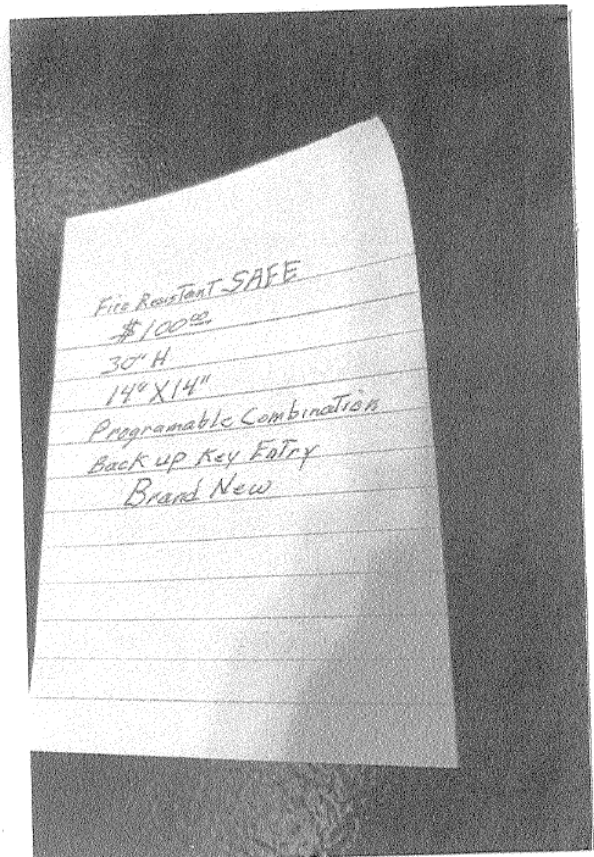 Fire Resistant SAFE
$100.00
30" H
14" X 14"
Programable Combination
Back up Key Entry
Brand New